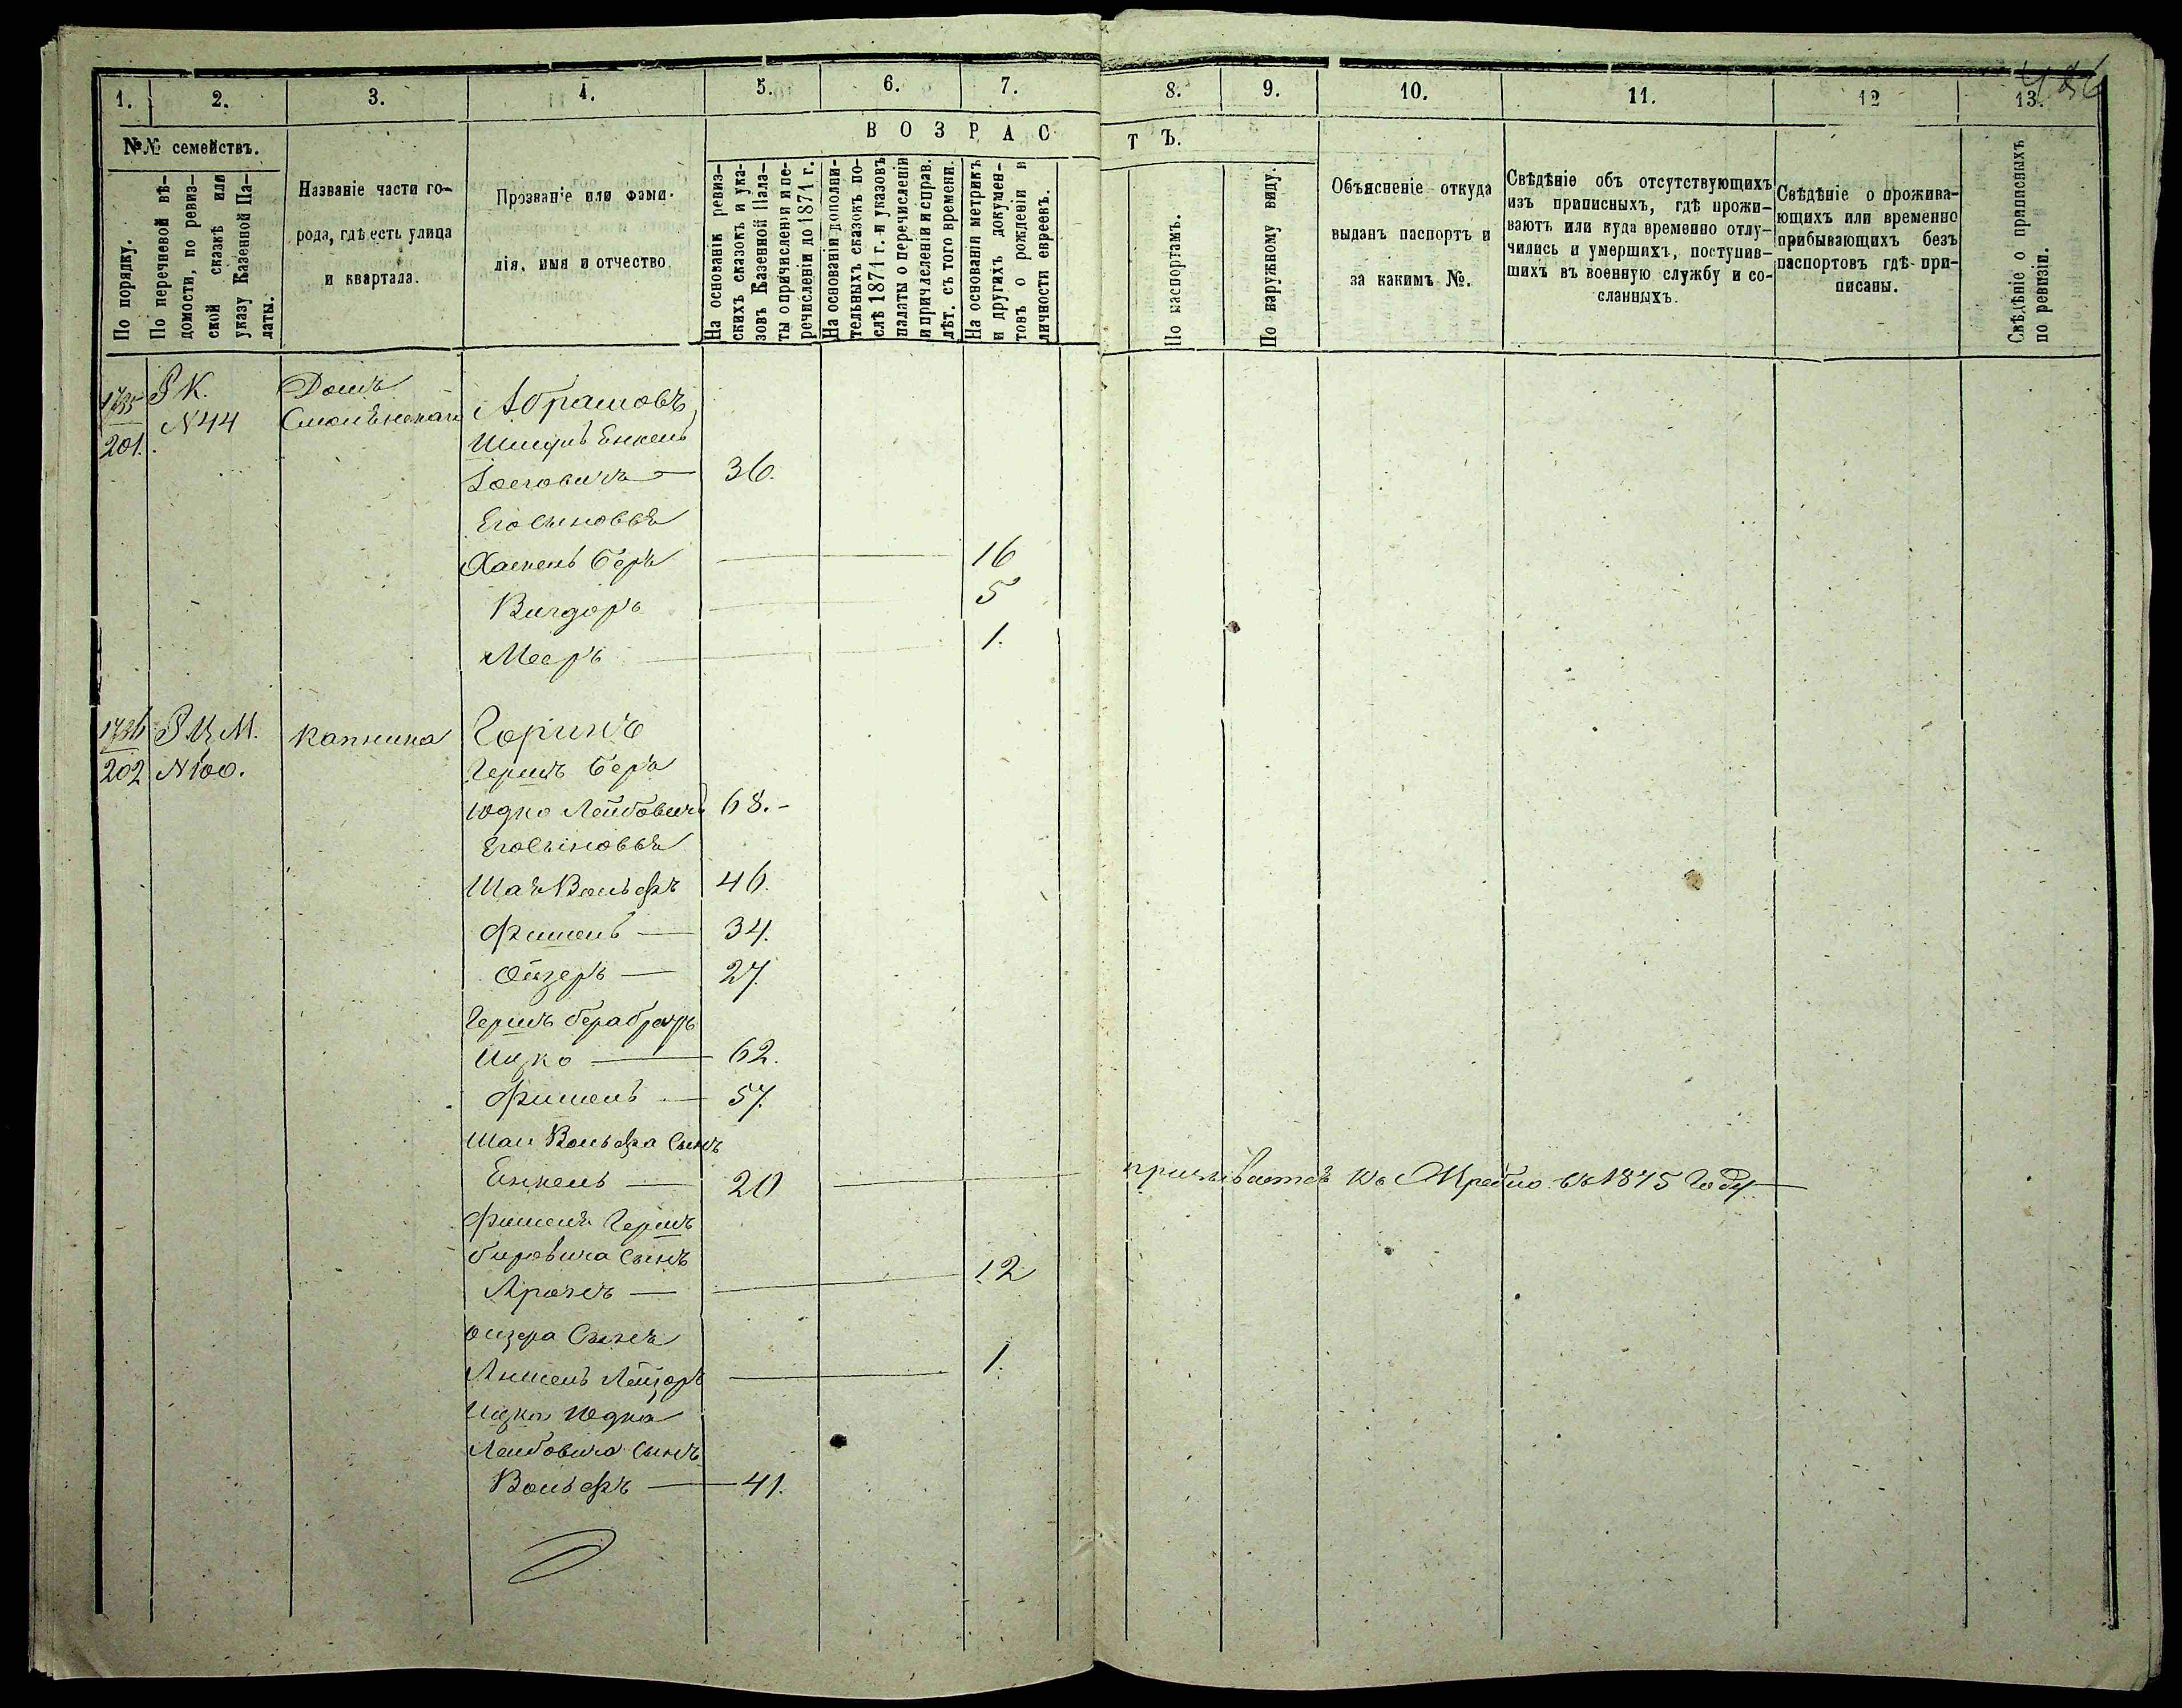 1. 2. 3. 4. 5. 6. 7. 8. 9. 10. 11. 12 13.
№№ семействъ.
По порядку.
По перечневой вѣ-
домости, по ревиз-
ской сказкѣ или
указу Казенной Па-
латы.
Названіе части го-
рода, гдѣ есть улица
и квартала.
Прозваніе или фами-
лія, имя и отчество
ВОЗРАСТЪ.
На основаніи ревиз-
скихъ сказокъ и ука-
зовъ Казенной Пала-
ты о причисленіи и пе-
речисленіи до 1871 г.
На основаніи дополни-
тельныхъ сказокъ по-
слѣ 1871 г. и указовъ
палаты о перечисленіи
и причисленіи и справ.
лѣт. съ того времени.
На основаніи метрикъ
и другихъ докумен-
товъ о рожденіи и
личности евреевъ.
По паспортамъ.
По наружному виду.
Объясненіе откуда
выданъ паспортъ и
за какимъ №.
Свѣдѣніе объ отсутствующихъ
изъ приписныхъ, гдѣ прожи-
ваютъ или куда временно отлу-
чились и умершихъ, поступив-
шихъ въ военную службу и со-
сланныхъ.
Свѣдѣніе о прожива-
ющихъ или временно
прибывающихъ безъ
паспортовъ гдѣ при-
писаны.
Свѣдѣніе о приписныхъ
по ревизіи.
1735 Р К. Домъ
201. N 44 Абрамовъ
Енкель
36.
Его сыновья
Хаскель Беръ 16
Вигдоръ 5
Мееръ 1.
1736 Р М. Капнина Горинъ
202 N 100. Гершъ Бера
Юдко Лейбовичъ 68.-
Его сыновья
Шая Вольфъ 46.
Фишель 34.
Ойзеръ 27.
Гершъ Бера братъ
Ицко 62.
Фишель 57.
Шаи Вольфа сынъ
Енкель 20 призывается къ жребію въ 1875 году
Фишеля Гершъ
Беровича сынъ
Аронъ 12
Оизера сынъ
Аншель Лейзоръ 1.
Ицка Юдка
Лейбовича сынъ
Вольфъ 41.